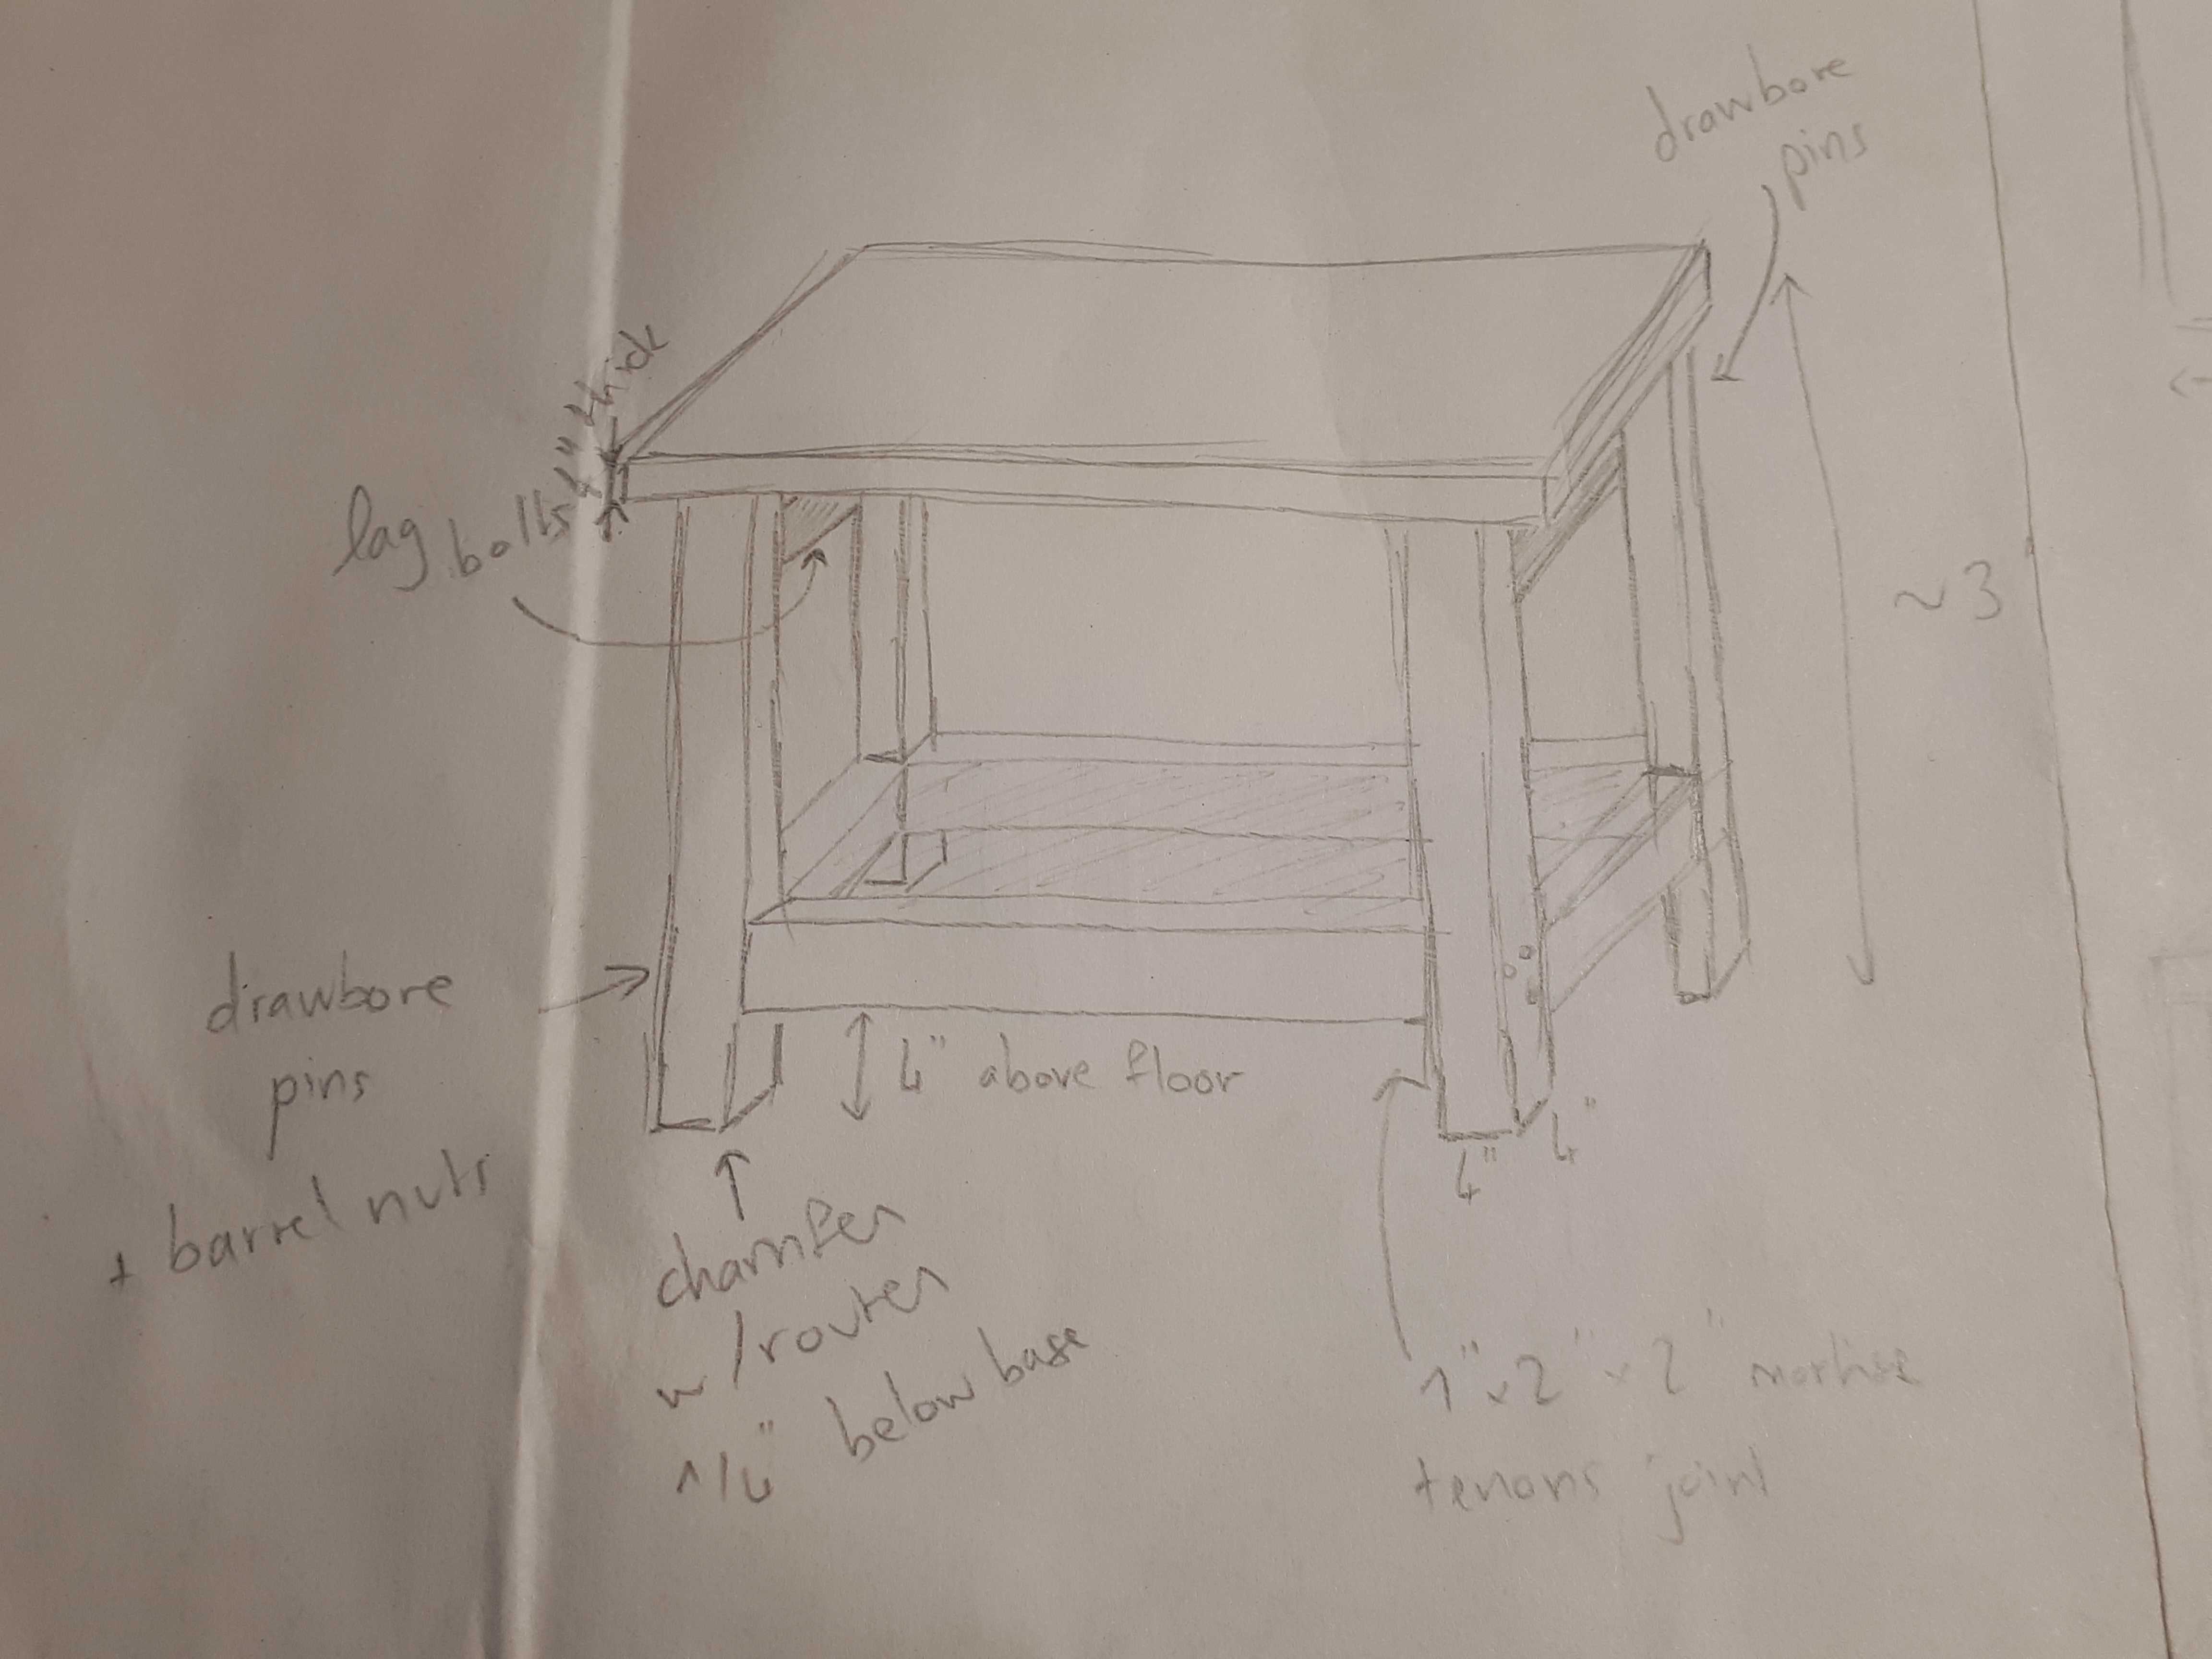 drawbore
pins
4" thick
lag bolts
~3'
drawbore
pins
+ barrel nuts
4" above floor
4"
4"
chamfer
w/router
1/4" below base
1" x 2" x 2" mortise
tenons joint